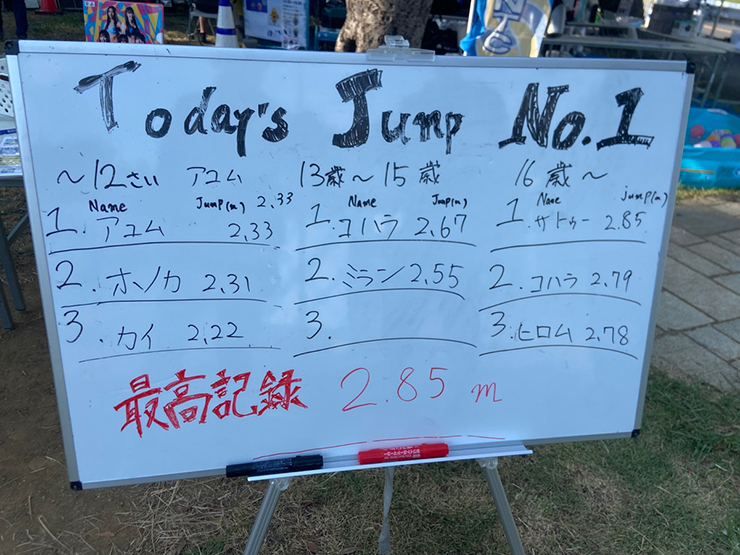 Today's Jump No.1
～12さい アユム
Name Jump(m) 2.33
1. アユム 2.33
2. ホノカ 2.31
3. カイ 2.22
13歳～15歳
Name Jump(m)
1. コハラ 2.67
2. ミラン 2.55
3.
16歳～
Name jump(m)
1. サトゥー 2.85
2. コハラ 2.79
3. ヒロム 2.78
最高記録 2.85 m